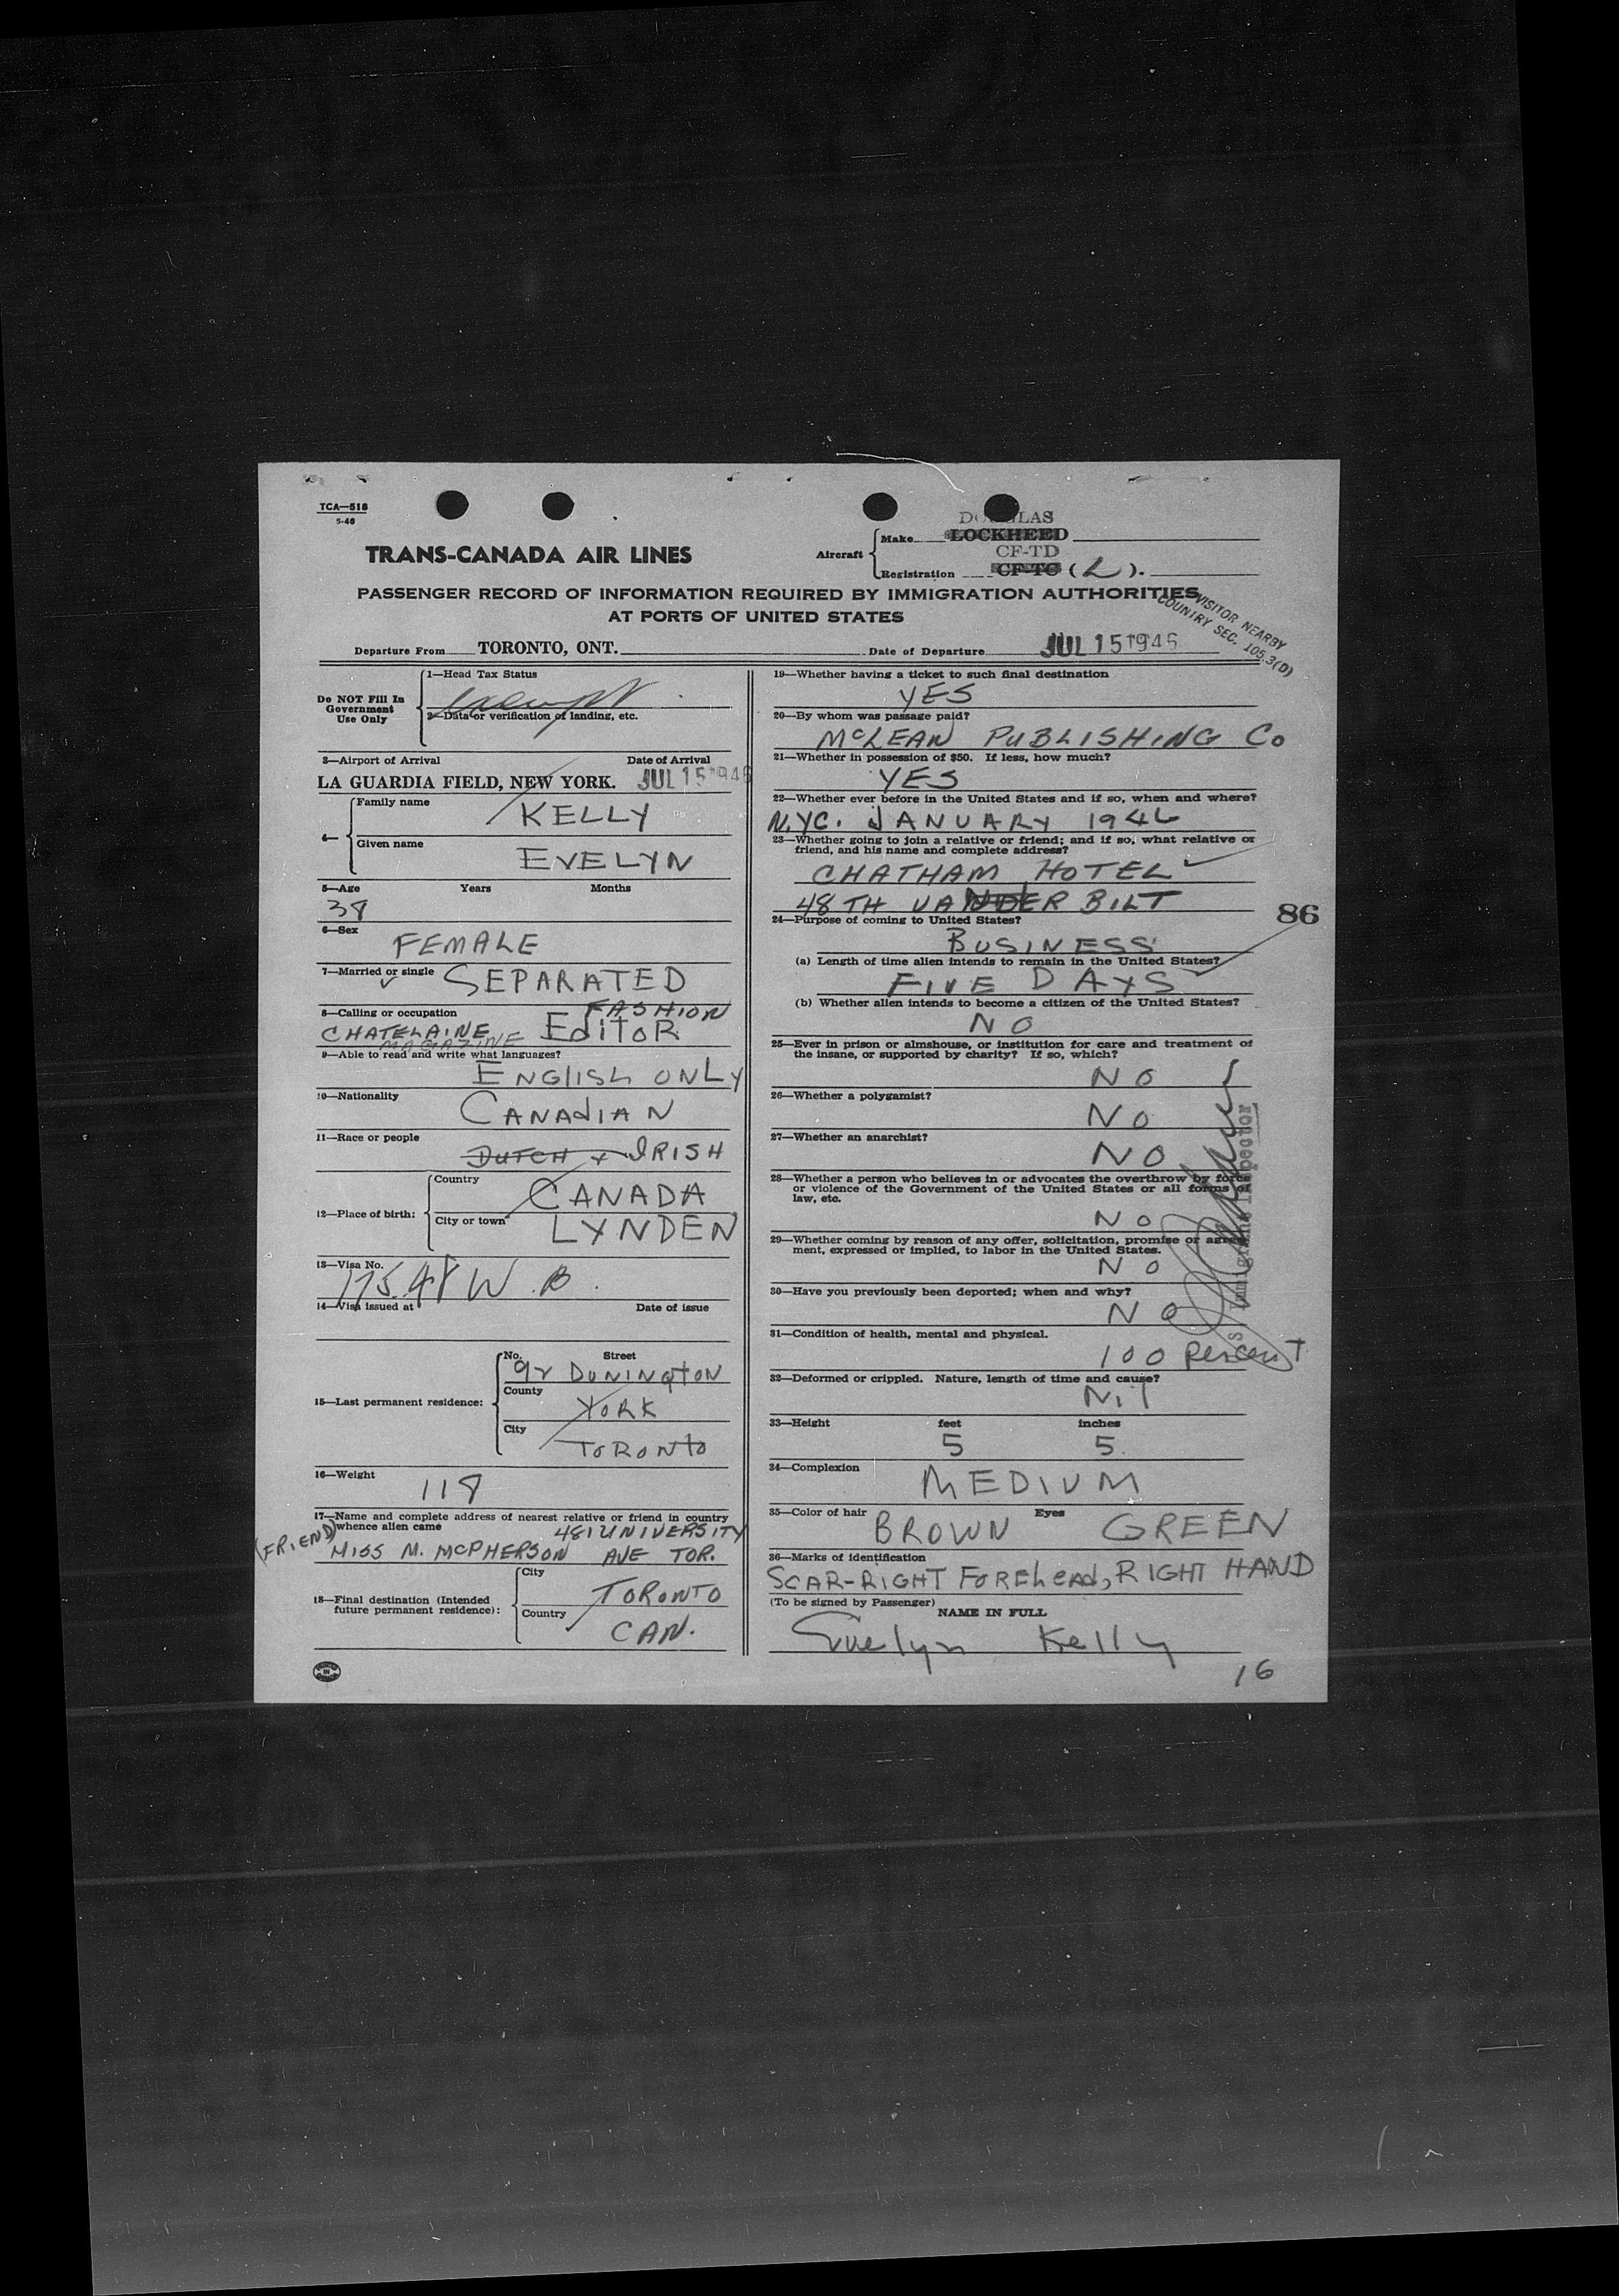 TCA—518
5-46
TRANS-CANADA AIR LINES
Aircraft
DOUGLAS
Make LOCKHEED
CF-TD
Registration CF-TC (L).
PASSENGER RECORD OF INFORMATION REQUIRED BY IMMIGRATION AUTHORITIES
AT PORTS OF UNITED STATES
VISITOR NEARBY
COUNTRY SEC. 105.3(D)
Departure From TORONTO, ONT.
Date of Departure JUL 15 1946
Do NOT Fill In
Government
Use Only
1—Head Tax Status
Exempt
2—Data or verification of landing, etc.
3—Airport of Arrival Date of Arrival
LA GUARDIA FIELD, NEW YORK. JUL 15 1946
4—
Family name
KELLY
Given name
EVELYN
5—Age Years Months
38
6—Sex
FEMALE
7—Married or single SEPARATED
8—Calling or occupation FASHION
CHATELAINE EDITOR
MAGAZINE
9—Able to read and write what languages?
ENGlISh ONLY
10—Nationality
CANAdIAN
11—Race or people
DUTCH + IRISH
12—Place of birth:
Country
CANADA
City or town
LYNDEN
13—Visa No.
175.48 W.B.
14—Visa issued at Date of issue
15—Last permanent residence:
No. Street
92 DUNINGTON
County
YORK
City
TORONTO
16—Weight
118
17—Name and complete address of nearest relative or friend in country
whence alien came
481 UNIVERSITY
(FRIEND) MISS M. MCPHERSON AVE TOR.
18—Final destination (Intended
future permanent residence):
City
TORONTO
Country
CAN.
19—Whether having a ticket to such final destination
YES
20—By whom was passage paid?
McLEAN PUBLISHING Co
21—Whether in possession of $50. If less, how much?
YES
22—Whether ever before in the United States and if so, when and where?
N.Y.C. JANUARY 1946
23—Whether going to join a relative or friend; and if so, what relative or
friend, and his name and complete address?
CHATHAM HOTEL
48TH VANDERBILT
86
24—Purpose of coming to United States?
BUSINESS
(a) Length of time alien intends to remain in the United States?
FIVE DAYS
(b) Whether alien intends to become a citizen of the United States?
NO
25—Ever in prison or almshouse, or institution for care and treatment of
the insane, or supported by charity? If so, which?
NO
26—Whether a polygamist?
NO
27—Whether an anarchist?
NO
28—Whether a person who believes in or advocates the overthrow by force
or violence of the Government of the United States or all forms of
law, etc.
NO
29—Whether coming by reason of any offer, solicitation, promise or agree-
ment, expressed or implied, to labor in the United States.
NO
30—Have you previously been deported; when and why?
NO
US Immigrant Inspector
31—Condition of health, mental and physical.
100 PERCENT
32—Deformed or crippled. Nature, length of time and cause?
Nil
33—Height feet inches
5 5
34—Complexion
MEDIUM
35—Color of hair Eyes
BROWN GREEN
36—Marks of identification
SCAR-RIGHT FOREhEAD, RIGHT HAND
(To be signed by Passenger)
NAME IN FULL
Evelyn Kelly
16